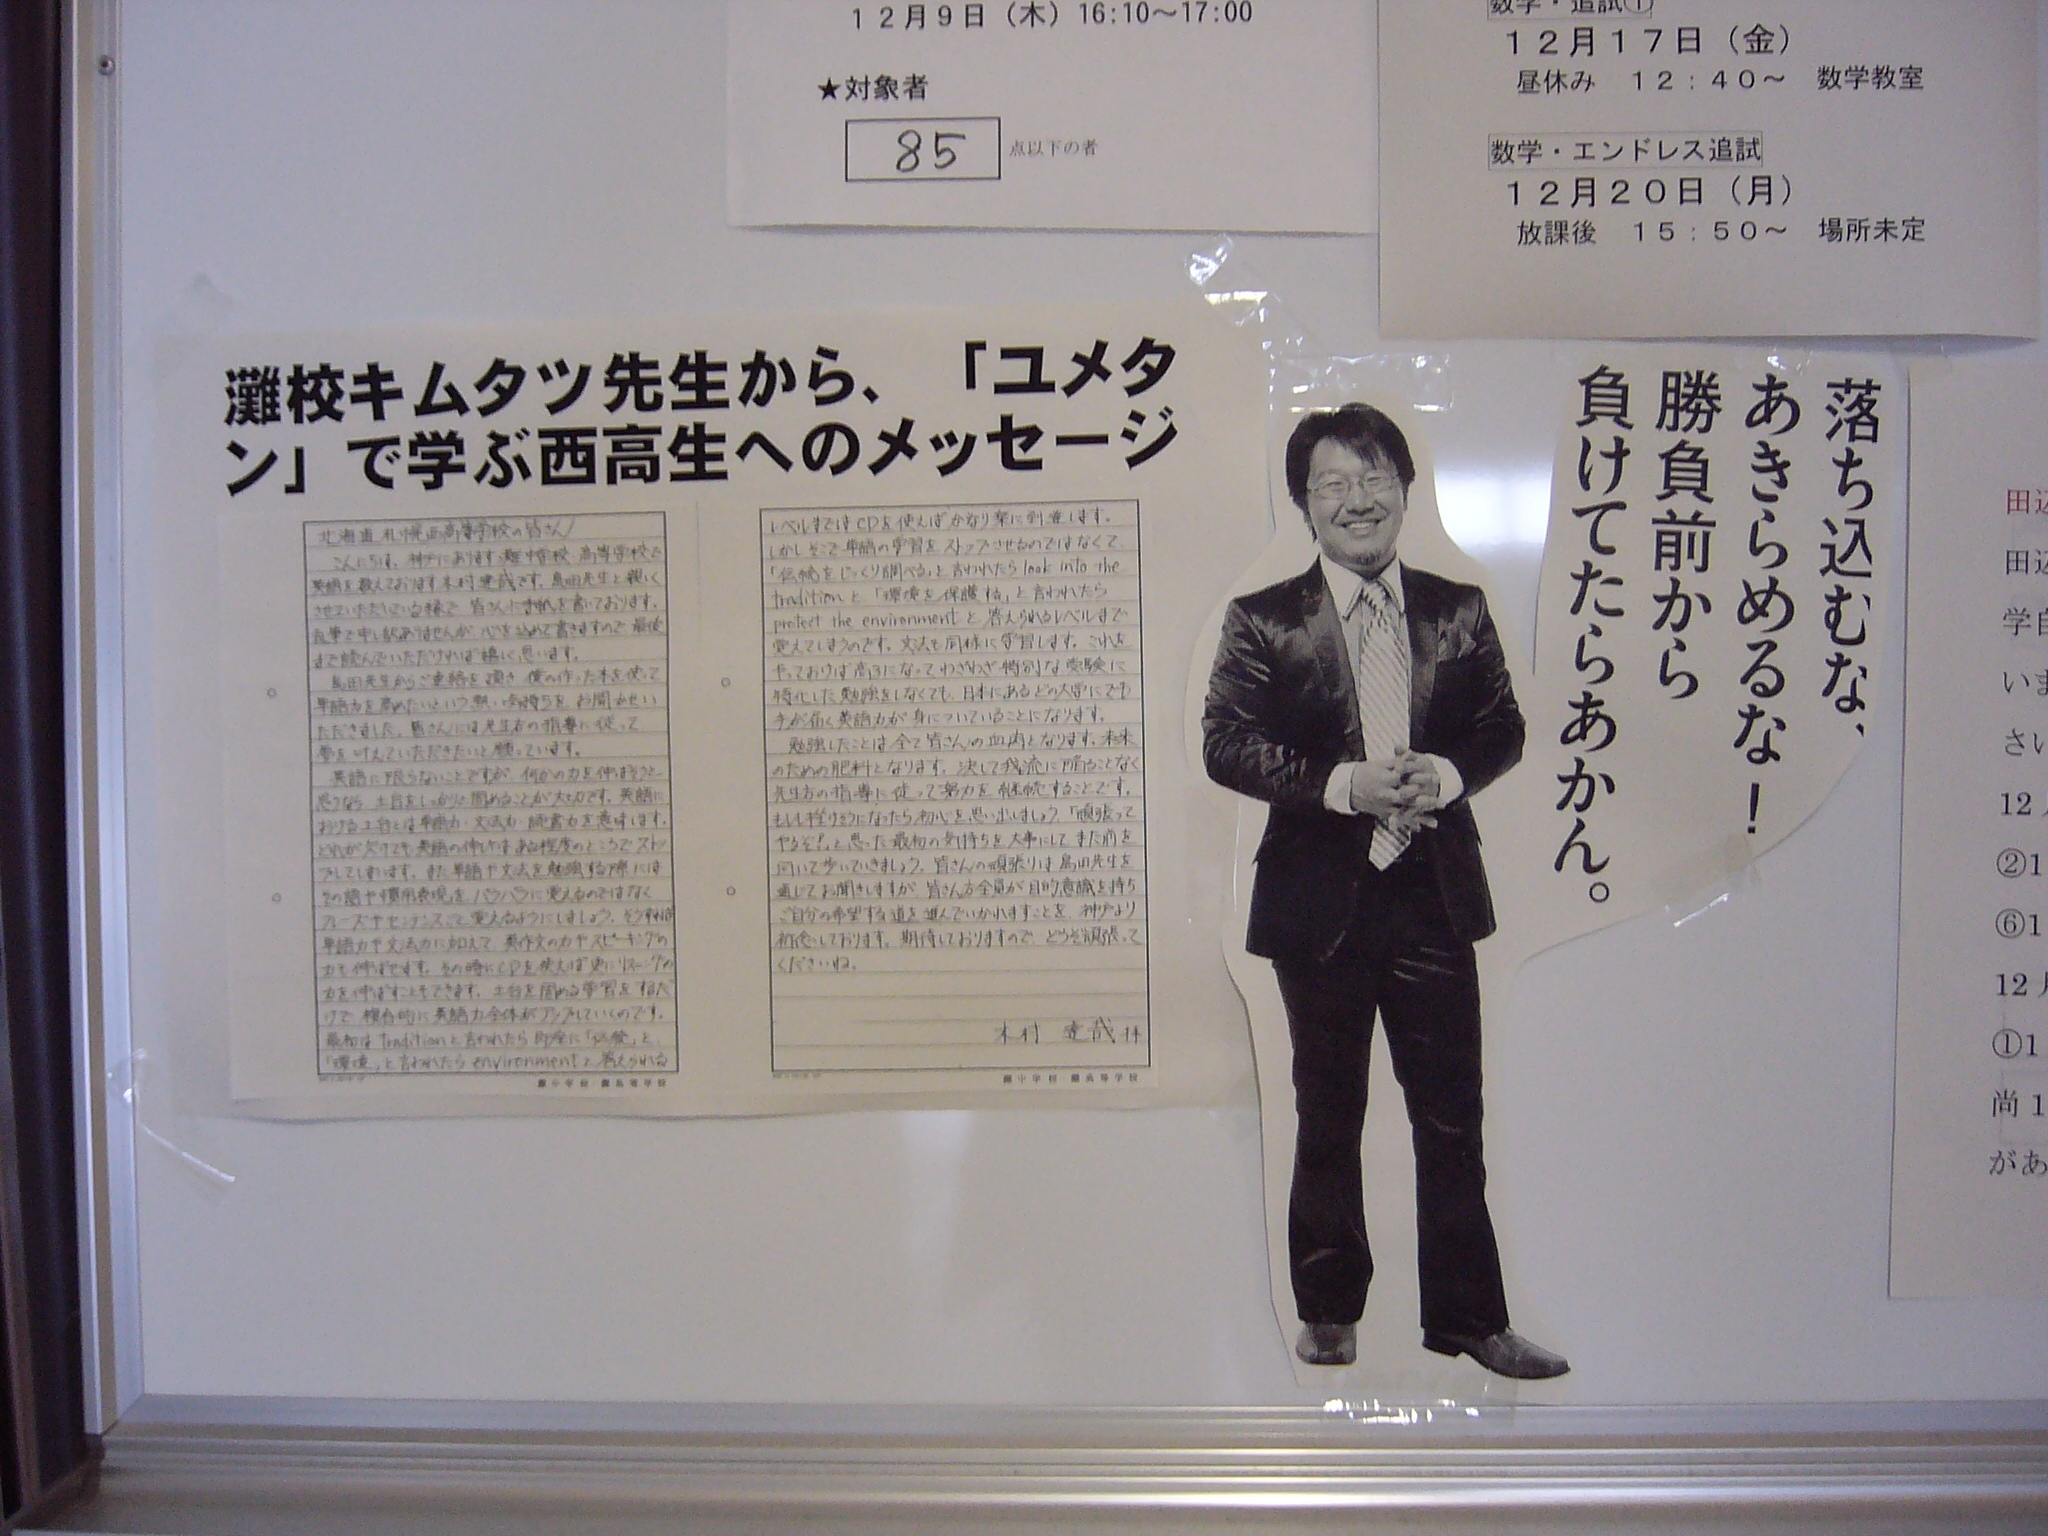 12月9日（木）16:10～17:00
★対象者
85 点以下の者
数学・追試①
12月17日（金）
昼休み　12：40～　数学教室
数学・エンドレス追試
12月20日（月）
放課後　15：50～　場所未定
灘校キムタツ先生から、「ユメタ
ン」で学ぶ西高生へのメッセージ
北海道札幌西高等学校の皆さん
こんにちは。神戸にあります灘中学校 高等学校で
英語を教えております木村達哉です。島田先生と親しく
させていただいている縁で 皆さんに手紙を書いております。
乱筆で申し訳ありませんが、心を込めて書きますので 最後
まで読んでいただければ嬉しく思います。
島田先生からご連絡を頂き、僕の作った本を使って
単語力を高めたいという熱い気持ちを お聞かせい
ただきました。皆さんには先生方の指導に従って
夢を叶えていただきたいと願っています。
英語に限らないことですが、何かの力を伸ばそうと
思うなら、土台をしっかりと固めることが大切です。英語に
おける土台とは単語力・文法力・読書力を意味します。
どれが欠けても 英語の伸びは ある程度のところでストッ
プしてしまいます。また単語や文法を勉強する際には
その語や慣用表現を、バラバラに覚えるのではなく
フレーズやセンテンスごと覚えるようにしましょう。そうすれば
単語力や文法力に加えて、英作文の力やスピーキングの
力も伸ばせます。その時にCDを使えば更にリスニングの
力を伸ばすこともできます。土台を固める学習をするだ
けで、複合的に英語力全体がアップしていくのです。
最初は traditionと言われたら 即座に「伝統」と、
「環境」と言われたら environmentと答えられる
レベルまではCDを使えばかなり楽に到達します。
しかしそこで単語の学習をストップさせるのではなくて、
「伝統をじっくり調べる」と言われたら look into the
tradition と「環境を保護する」と言われたら
protect the environment と答えられるレベルまで
覚えてしまうのです。文法も同様に学習します。これを
やっておけば高3になってわざわざ特別な受験に
特化した勉強をしなくても、日本にあるどの大学にでも
手が届く英語力が身についていることになります。
勉強したことは全て皆さんの血肉となります。未来
のための肥料となります。決して我流に陥ることなく
先生方の指導に従って努力を継続することです。
もしも挫けそうになったら初心を思い出しましょう。「頑張って
やるぞ!」と思った最初の気持ちを大事にして また前を
向いて歩いていきましょう。皆さんの頑張りは島田先生を
通じてお聞きしますが、皆さん方全員が目的意識を持ち
ご自分の希望する道を進んでいかれますことを、神戸より
祈念しております。期待しておりますので、どうぞ頑張って
くださいね。
木村 達哉 拝
灘中学校 灘高等学校
灘中学校 灘高等学校
落ち込むな、
あきらめるな！
勝負前から
負けてたらあかん。
田辺
田辺
学自
いま
さい
12月
②1
⑥1
12月
①1
尚1
があ